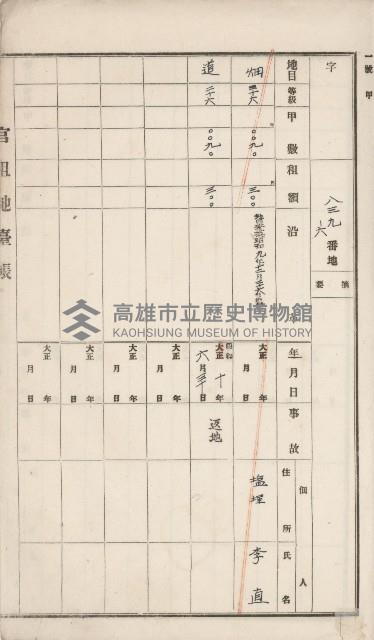 一號甲
字
八三九
一六
番地
摘要
地目
等級
甲數
租額
沿革
年月日
事故
佃人
住所
氏名
畑
二十六
〇〇九〇
三〇
大正
年
月
日
塩埕
李直
道
二十六
〇〇九〇
三〇
昭和
大正
十年
六月
日
返地
大正
年
月
日
大正
年
月
日
大正
年
月
日
大正
年
月
日
官租地臺帳
高雄市立歷史博物館
KAOHSIUNG MUSEUM OF HISTORY